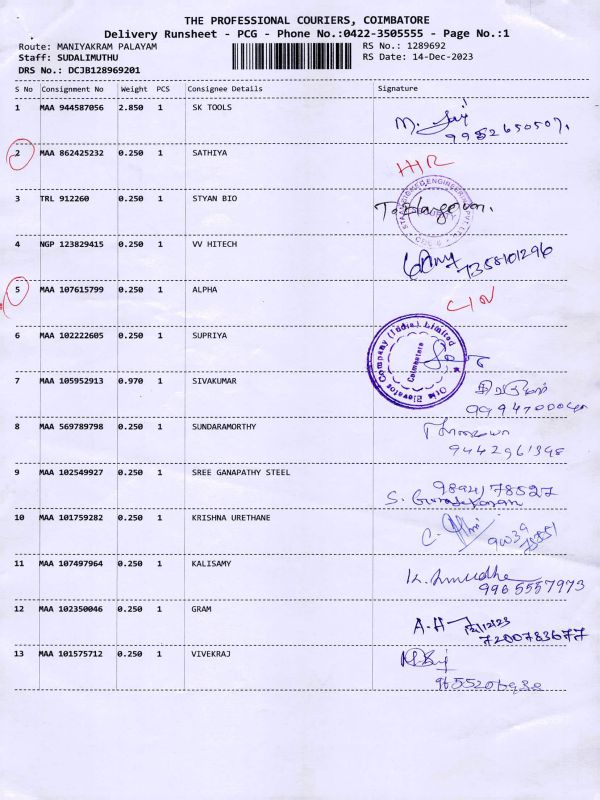 THE PROFESSIONAL COURIERS, COIMBATORE
Delivery Runsheet - PCG - Phone No.:0422-3505555 - Page No.:1
Route: MANIYAKRAM PALAYAM RS No.: 1289692
Staff: SUDALIMUTHU RS Date: 14-Dec-2023
DRS No.: DCJB128969201
S No Consignment No Weight PCS Consignee Details Signature
1 MAA 944587056 2.850 1 SK TOOLS
2 MAA 862425232 0.250 1 SATHIYA
3 TRL 912260 0.250 1 STYAN BIO
4 NGP 123829415 0.250 1 VV HITECH
7358101296
5 MAA 107615799 0.250 1 ALPHA
6 MAA 102222605 0.250 1 SUPRIYA
Otis Elevator Company (India) Limited
Coimbatore
7 MAA 105952913 0.970 1 SIVAKUMAR
8 MAA 569789798 0.250 1 SUNDARAMORTHY
9442961398
9 MAA 102549927 0.250 1 SREE GANAPATHY STEEL
9894178527
S. Gunasekaran
10 MAA 101759282 0.250 1 KRISHNA URETHANE
11 MAA 107497964 0.250 1 KALISAMY
K. Amudha
9965557973
12 MAA 102350046 0.250 1 GRAM
7200783677
13 MAA 101575712 0.250 1 VIVEKRAJ